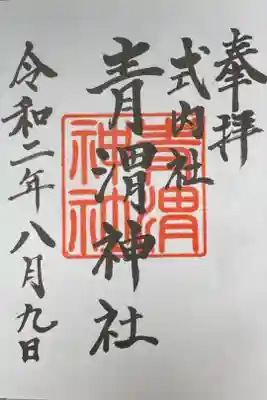 奉拝
式内社
青渭神社
青渭神社
令和二年八月九日